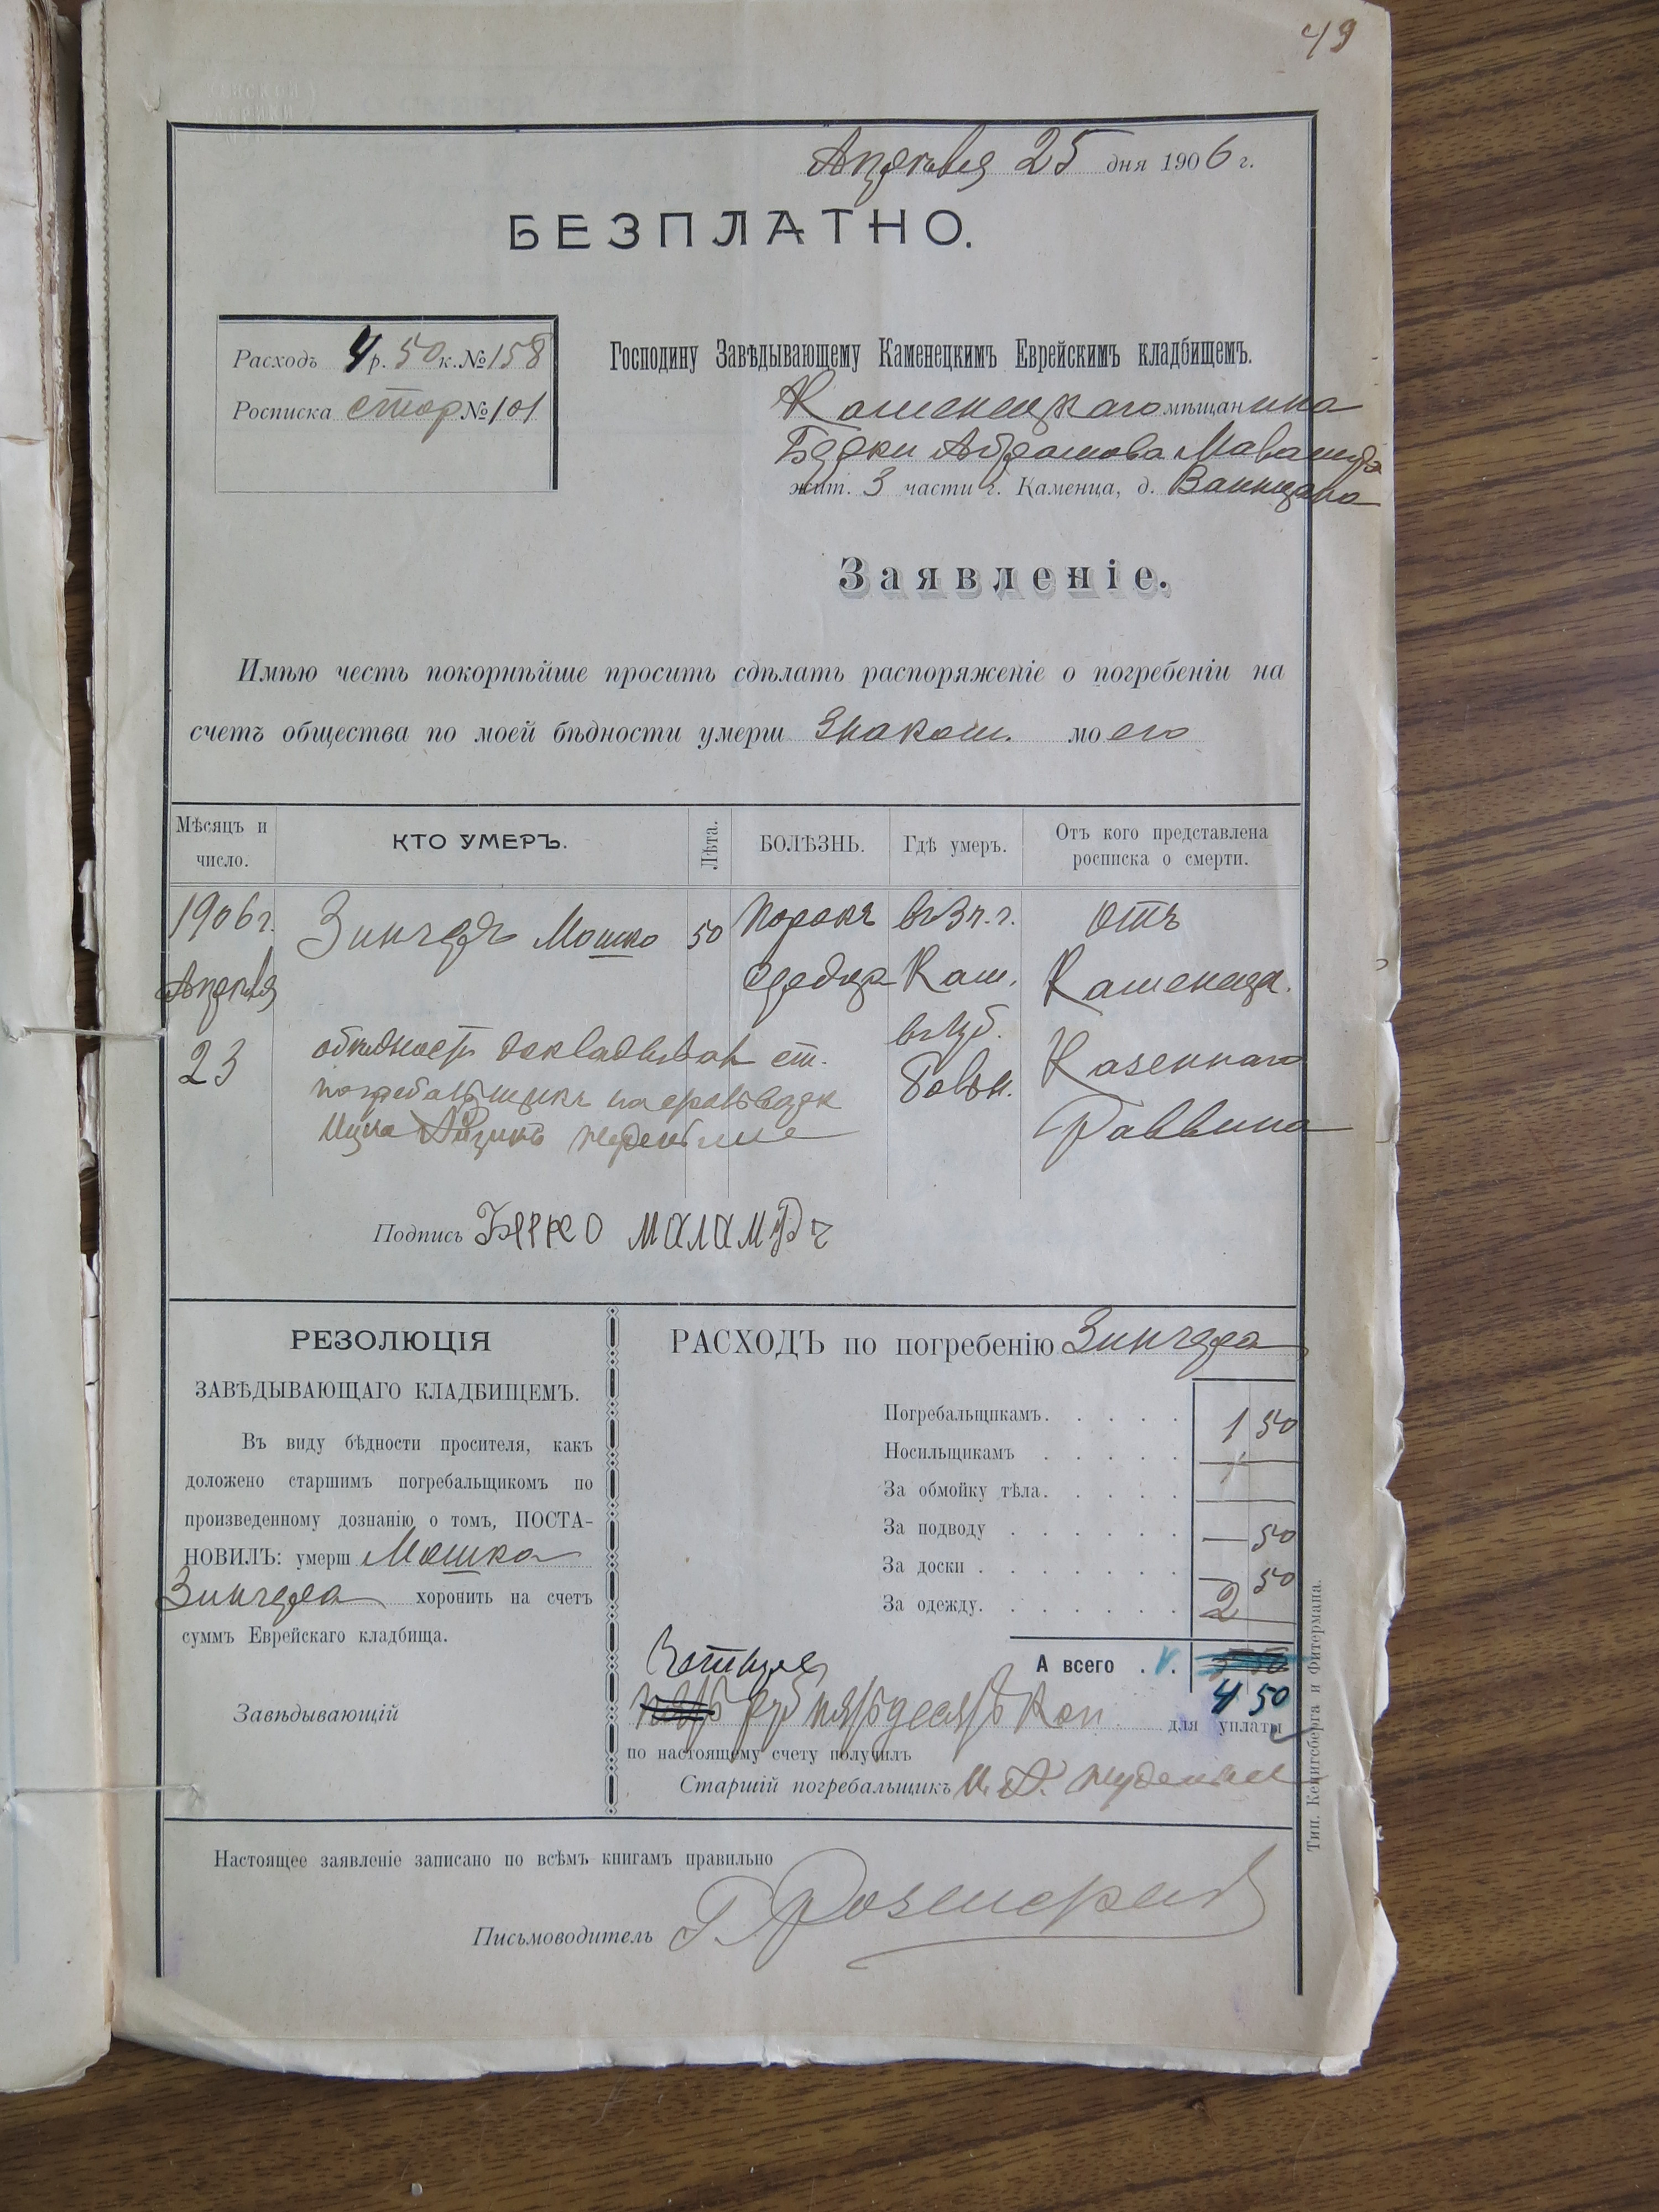 49
Апрѣля 25 дня 1906 г.
БЕЗПЛАТНО.
Расходъ 4 р. 50 к. № 158
Росписка стор № 101
Господину Завѣдывающему Каменецкимъ Еврейскимъ кладбищемъ.
Каменецкаго мѣщанина
Берки Абрамова
жит. 3 части г. Каменца, д.
Заявленіе.
Имѣю честь покорнѣйше просить сдѣлать распоряженіе о погребеніи на
счетъ общества по моей бѣдности умерш знаком. моего
Мѣсяцъ и число.
КТО УМЕРЪ.
Лѣта.
БОЛѢЗНЬ.
Гдѣ умеръ.
Отъ кого представлена росписка о смерти.
1906 г. Апрѣля 23
Зингеръ Мошко
50
Порокъ сердца
въ 3 ч. г. Кам.
Отъ Каменецк. Казеннаго Раввина
обѣдности докладывалъ ст.
погребальщикъ
Подпись БЯРКО МАЛАМ
РЕЗОЛЮЦІЯ
ЗАВѢДЫВАЮЩАГО КЛАДБИЩЕМЪ.
Въ виду бѣдности просителя, какъ
доложено старшимъ погребальщикомъ по
произведенному дознанію о томъ, ПОСТА-
НОВИЛЪ: умерш Мошка
Зингера хоронить на счетъ
суммъ Еврейскаго кладбища.
Завѣдывающій
РАСХОДЪ по погребенію Зингера
Погребальщикамъ. . . . . 1 50
Носильщикамъ . . . . . —
За обмойку тѣла. . . . . —
За подводу . . . . . . — 50
За доски . . . . . . . — 50
За одежду. . . . . . . 2 —
А всего . V. 4 50
Четыре
руб пятьдесятъ коп. для уплаты
по настоящему счету получилъ
Старшій погребальщикъ И. А.
Настоящее заявленіе записано по всѣмъ книгамъ правильно
Письмоводитель
Тип. Кенигсберга и Фитермана.